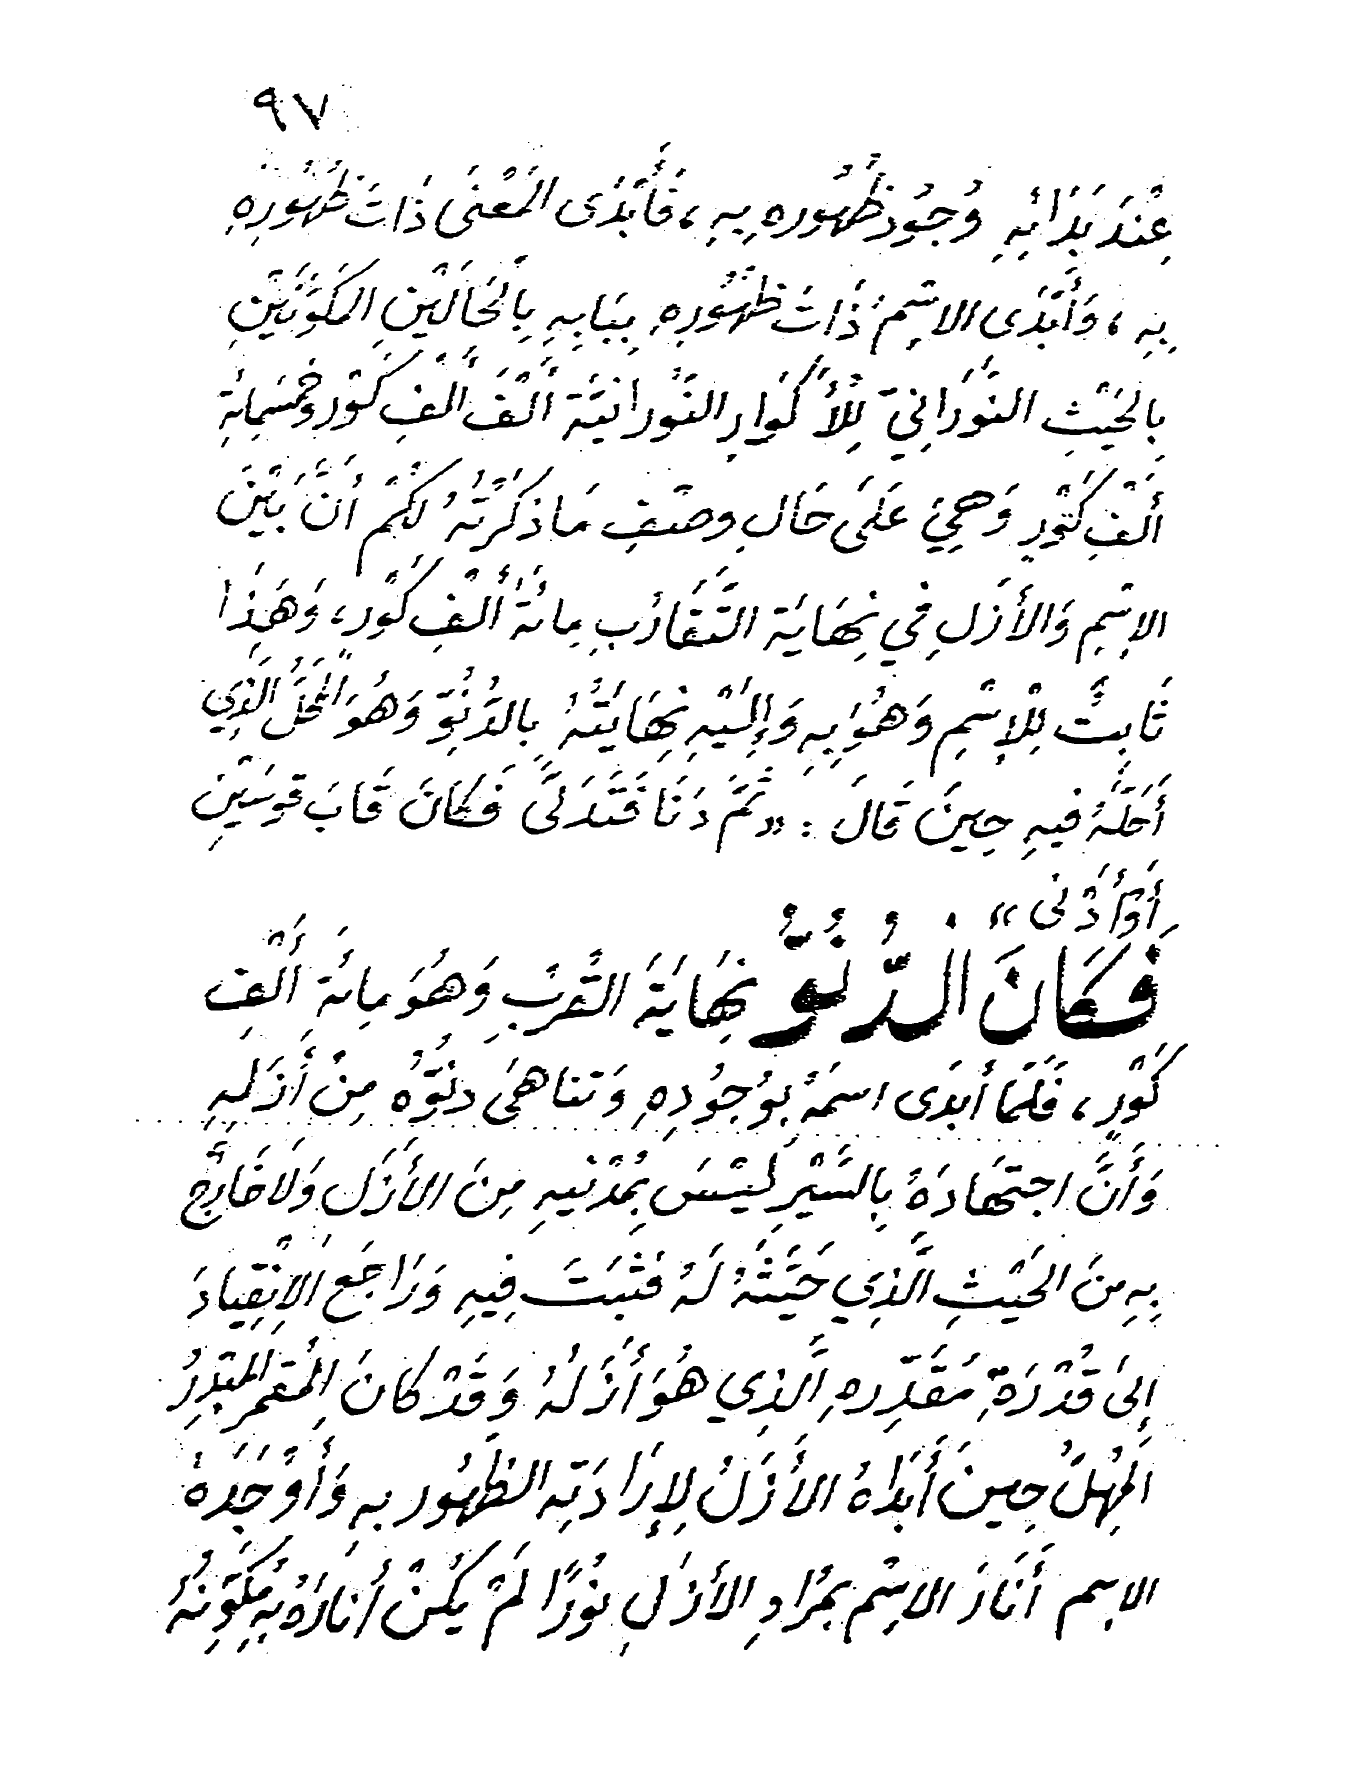 ٩٧
عِنْدَ بَدَائِهِ وُجُودَ ظُهُورِهِ بِهِ ، فَأَبْدَى الْمَعْنَى ذَاتَ ظُهُورِهِ
بِهِ ، وَأَبْدَى الاِسْمُ ذَاتَ ظُهُورِهِ بِبَابِهِ بِالْحَالَيْنِ الْمُكَوَّنَيْنِ
بِالْحَيْثِ النُّورَانِيِّ لِلْأَكْوَارِ النُّورَانِيَّةِ أَلْفَ أَلْفِ كَوْرٍ وَخَمْسَمِائَةِ
أَلْفِ كَوْرٍ وَهِيَ عَلَى حَالِ وَصْفِ مَا ذَكَرْتُهُ لَكُمْ أَنَّ بَيْنَ
الاِسْمِ وَالأَزَلِ فِي نِهَايَةِ التَّقَارُبِ مِائَةُ أَلْفِ كَوْرٍ ، وَهَذَا
ثَابِتٌ لِلْإِسْمِ وَهُوَ بِهِ وَإِلَيْهِ نِهَايَتُهُ بِالدُّنُوِّ وَهُوَ الْمَحَلُّ الَّذِي
أَحَلَّهُ فِيهِ حِينَ قَالَ : «ثُمَّ دَنَا فَتَدَلَّى فَكَانَ قَابَ قَوْسَيْنِ
أَوْ أَدْنَى»
فَكَانَ الدُّنُوُّ نِهَايَةَ الْقُرْبِ وَهُوَ مِائَةُ أَلْفِ
كَوْرٍ ، فَلَمَّا أَبْدَى اسمَهُ بِوُجُودِهِ وَتَنَاهَى دنُوُّهُ مِنْ أَزَلِهِ
وَأَنَّ اجتِهَادَهُ بِالسَّيْرِ لَيْسَ بِمُدْنِيهِ مِنَ الأَزَلِ وَلاَ خَارِجٍ
بِهِ مِنَ الْحَيْثِ الَّذِي حَيَّثَهُ لَهُ فَثَبَتَ فِيهِ وَرَاجَعَ الاِنْقِيَادَ
إِلَى قُدْرَةِ مُقَدِّرِهِ الَّذِي هُوَ أَزَلُهُ وَقَدْ كَانَ الْقَمَرُ الْمُبْدِرُ
الْمُهِلُّ حِينَ أَبْدَاهُ الأَزَلُ لِإِرَادَتِهِ الظُّهُورَ بِهِ وَأَوْجَدَهُ
الاِسم أَنَارَ الاِسْم بِمُرَادِ الأَزَلِ نُورًا لَمْ يَكُنْ أَنَارَهُ بِهِ مُكَوِّنُهُ